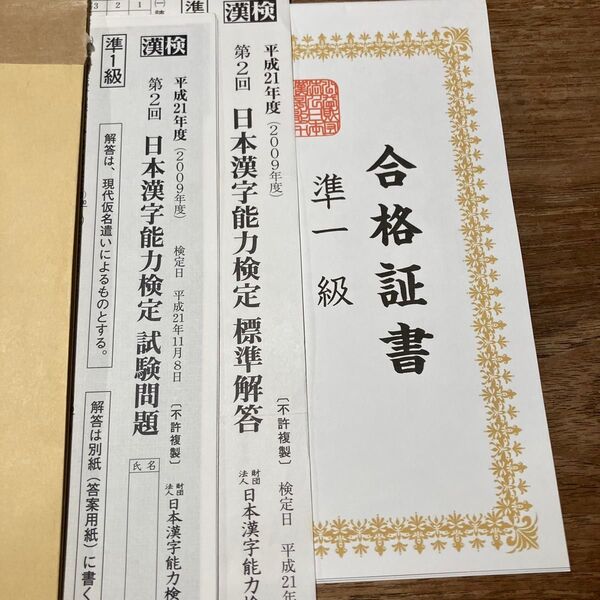 合格証書
準一級
準
漢検
平成21年度(2009年度)
第2回 日本漢字能力検定 標準解答
〔不許複製〕
検定日 平成21年
財団法人 日本漢字能力検
漢検
準1級
平成21年度(2009年度) 検定日 平成21年11月8日
第2回 日本漢字能力検定 試験問題
〔不許複製〕
財団法人 日本漢字能力検
氏名
解答は、現代仮名遣いによるものとする。
解答は別紙(答案用紙)に書く
3 2 1 (一)